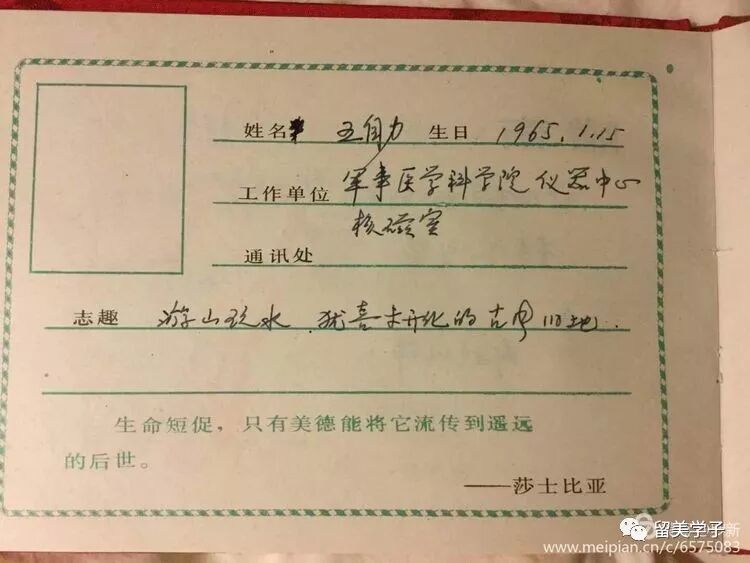 姓名 王自力 生日 1965.1.15
工作单位 军事医学科学院仪器中心
核磁室
通讯处
志趣 游山玩水.犹喜未开化的古 旧地.
生命短促，只有美德能将它流传到遥远
的后世。
——莎士比亚
留美学子
www.meipian.cn/c/6575083